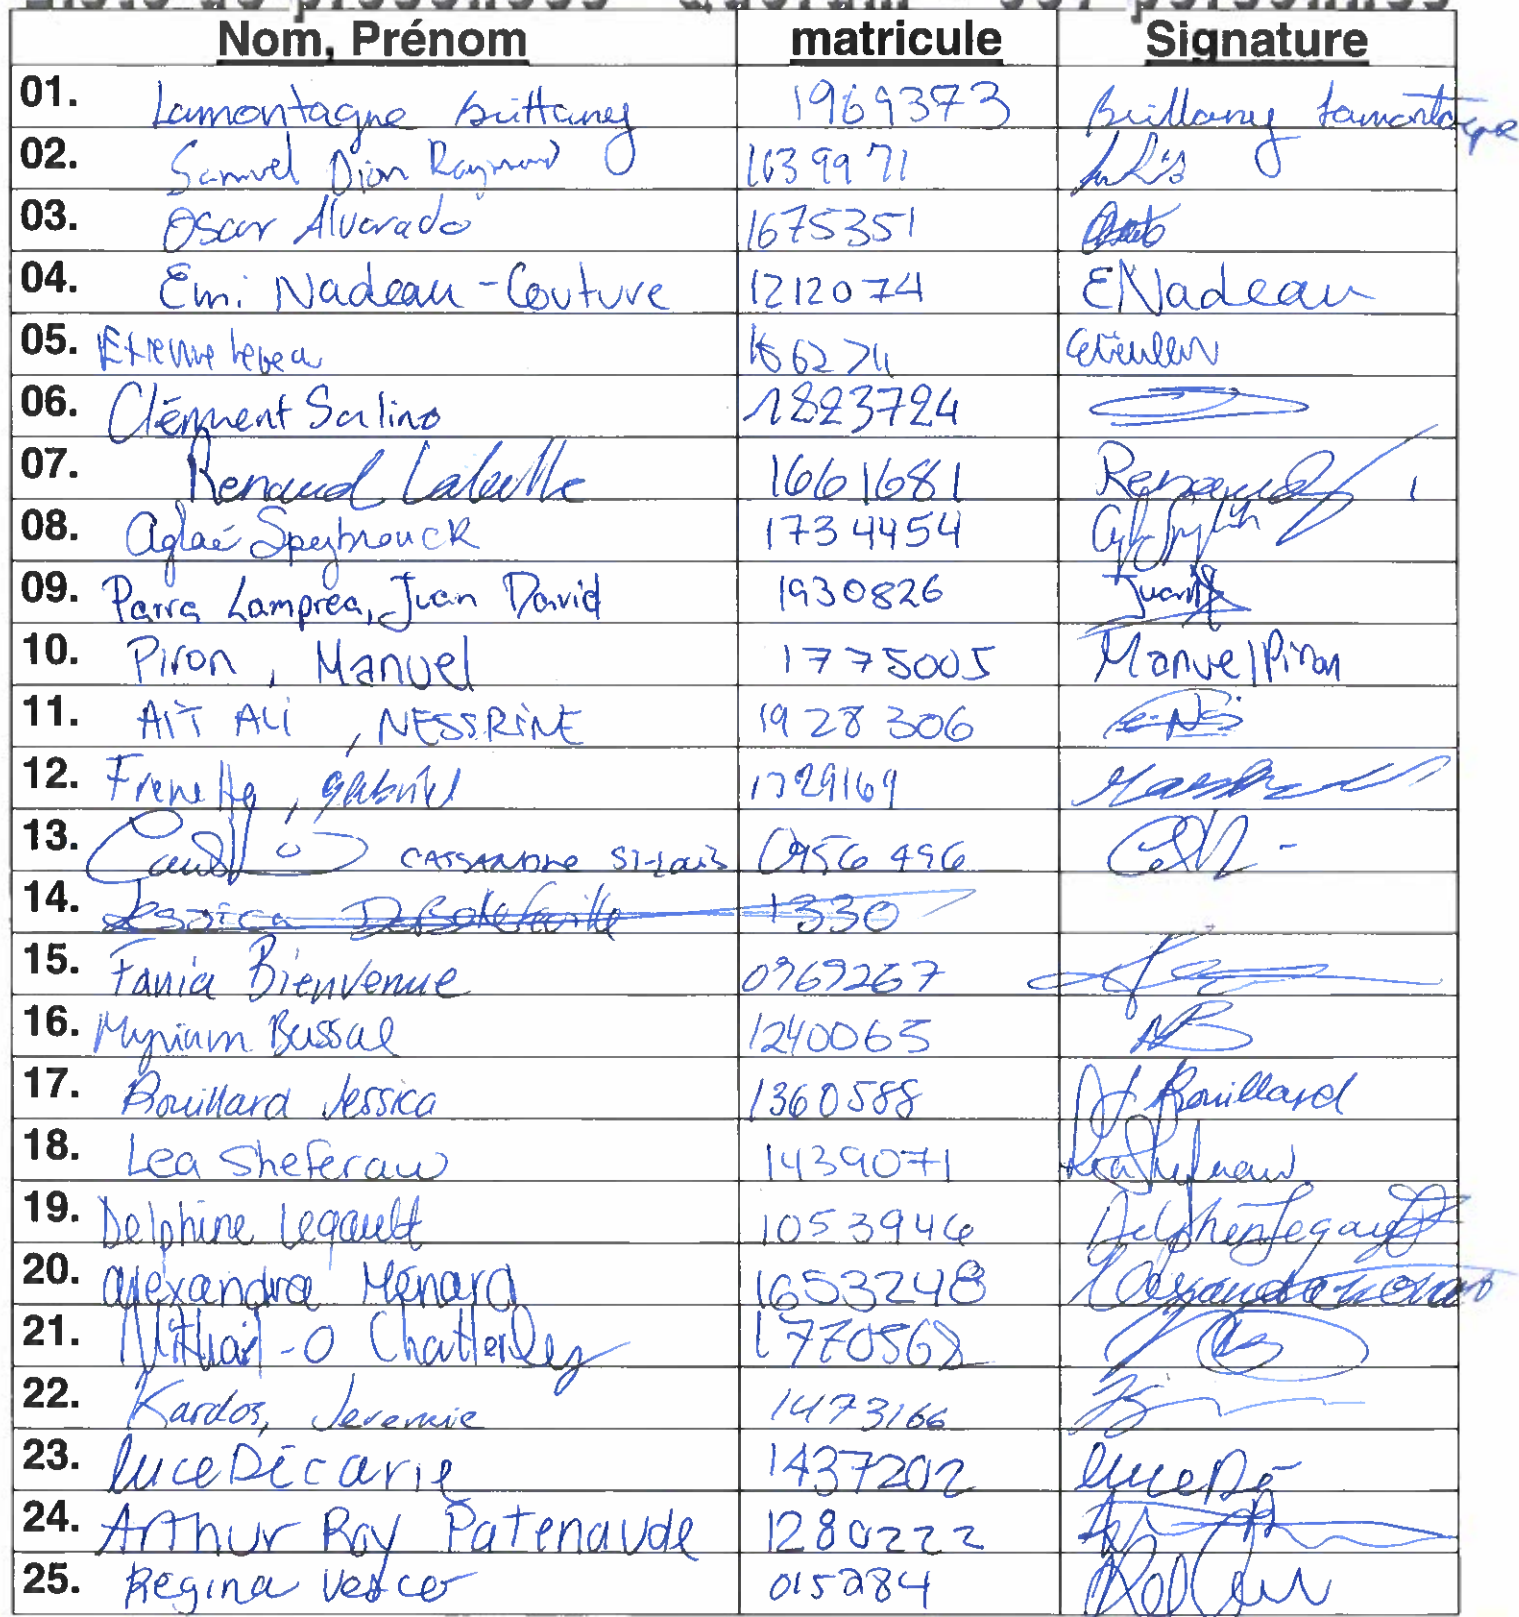 Liste de présences - Quorum - 
Nom, Prénom matricule Signature
01. Lamontagne Brittany 1969373 Brittany Lamontagne
02. Samuel Dion Raymond 1639971
03. Oscar Alvarado 1675351
04. Emi Nadeau-Couture 1212074 ENadeau
05. Etienne
06. Clément Salino 1823724
07. Renaud 1661681 Renaud
08. Aglaé Speybrouck 1734454
09. Parra Lamprea, Juan David 1930826 Juan
10. Piron, Manuel 1775005 Manuel Piron
11. AIT ALI, NESSRINE 1928306
12. Frenette, gabriel 1729169
13. CASSANDRE ST-LOUIS 0956496
14. 1330
15. Fania Bienvenue 0969267
16. Myriam Bussal 1240065
17. Rouillard Jessica 1360588 J Rouillard
18. Lea Sheferaw 1439071 Lea Sheferaw
19. Delphine Legault 1053946 Delphine Legault
20. alexandra Ménard 1653248
21. 1770562
22. Kardos, Jeremie 1473166
23. luce Décarie 1437202 luce Dé
24. Arthur Roy Patenaude 1280222
25. Regina 015284